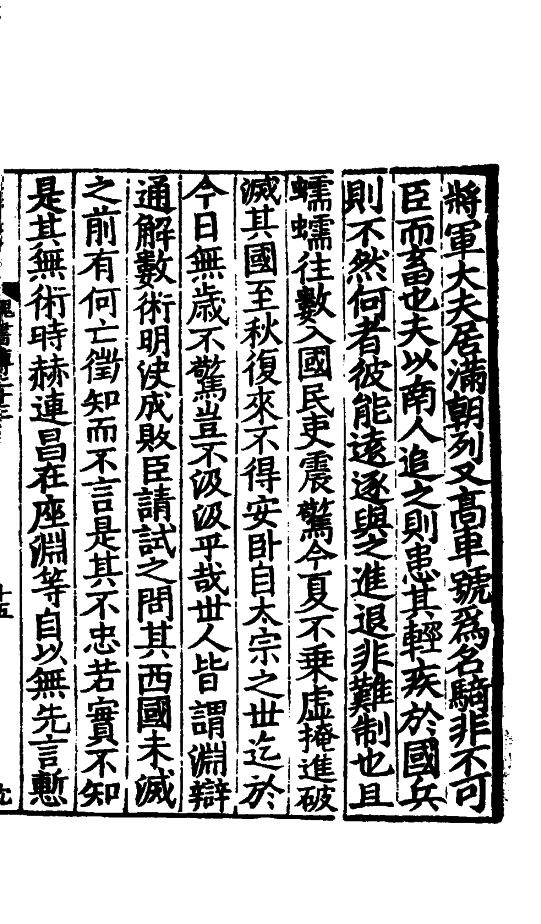 將軍大夫居滿朝列又高車號爲名騎非不可
臣而畜也夫以南人追之則患其輕疾於國兵
則不然何者彼能遠逐與之進退非難制也且
蠕蠕往數入國民吏震驚今夏不乗虛掩進破
滅其國至秋復來不得安卧自太宗之世迄於
今日無歳不驚豈不汲汲乎哉世人皆謂淵辯
通解數術明决成敗臣請試之問其西國未滅
之前有何亡徵知而不言是其不忠若實不知
是其無術時赫連昌在座淵等自以無先言慙
十五